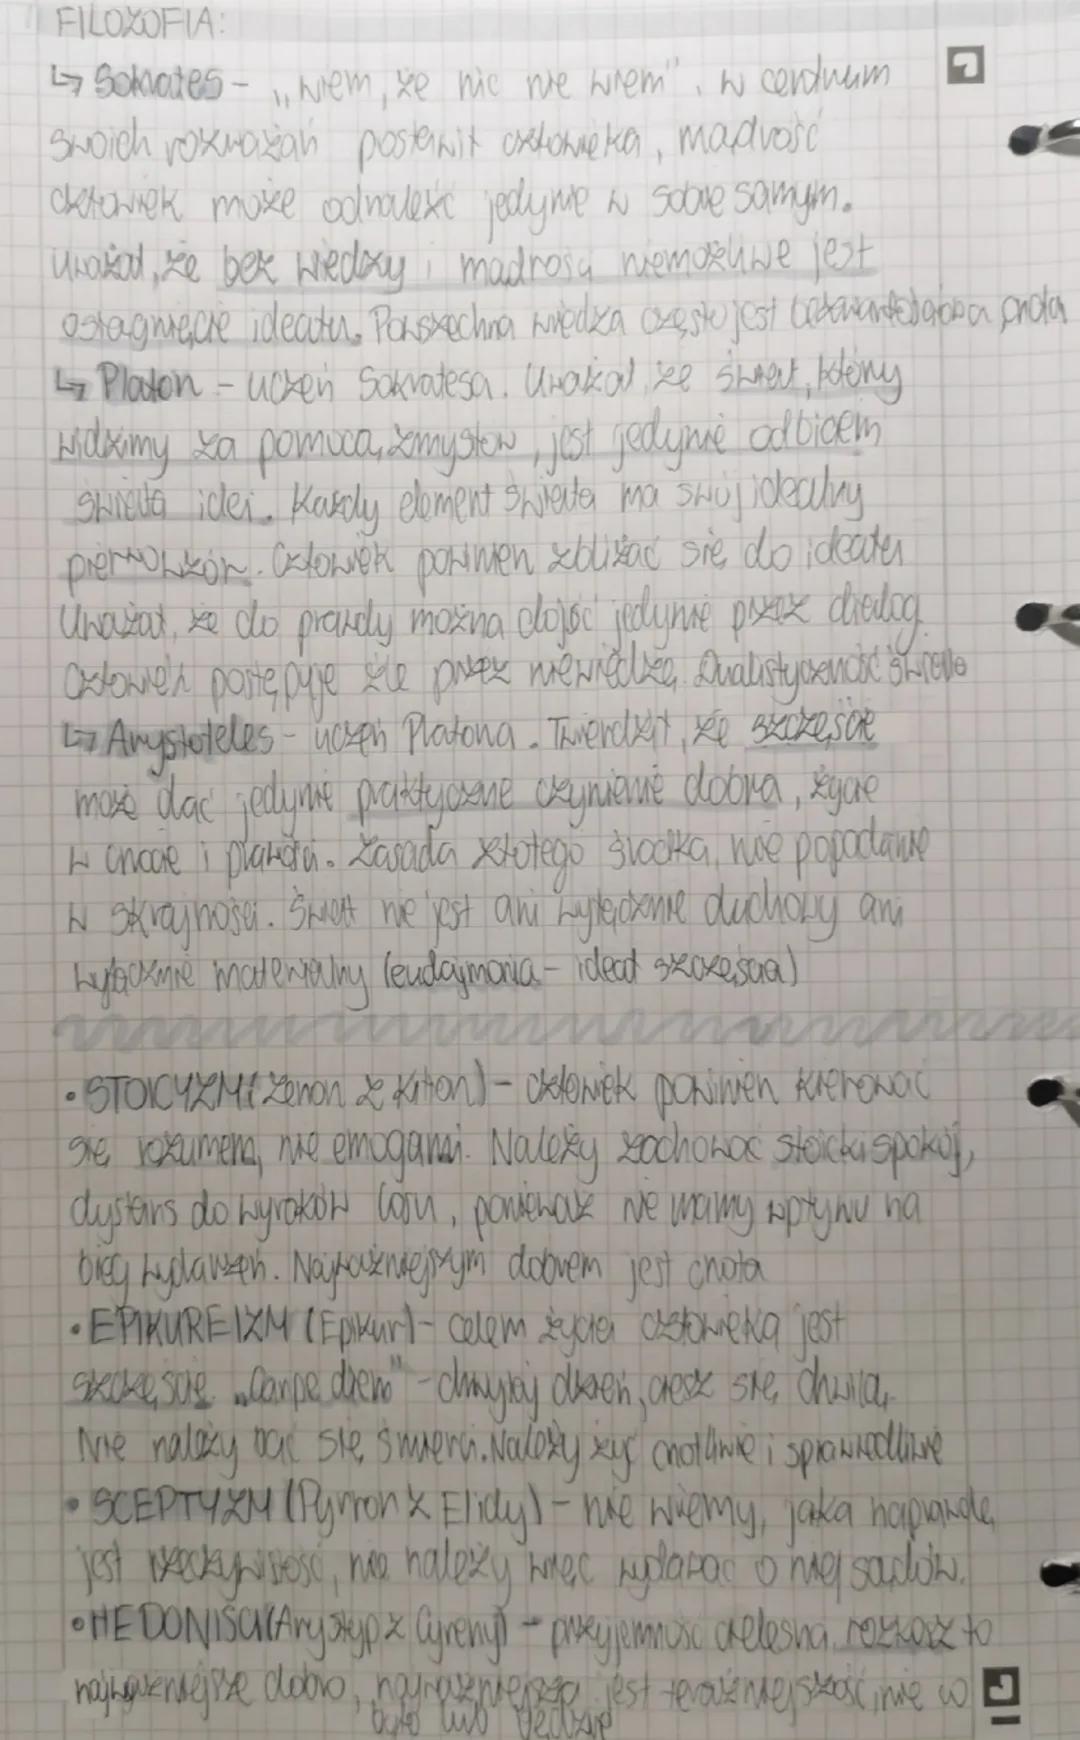 FILOZOFIA:
↳ Sokrates - „wiem, że nic nie wiem", w centrum
swoich rozważań postawił człowieka, mądrość
człowiek może odnaleźć jedynie w sobie samym.
Uważał, że bez wiedzy i mądrości niemożliwe jest
osiągnięcie ideału. Powszechna wiedza często jest cnota
↳ Platon - uczeń Sokratesa. Uważał, że świat, który
widzimy za pomocą zmysłów, jest jedynie odbiciem
świata idei. Każdy element świata ma swój idealny
pierwowzór. Człowiek powinien zbliżać się do ideału
Uważał, że do prawdy można dojść jedynie przez dialog.
Człowiek postępuje źle przez niewiedzę. Dualistyczność świata
↳ Arystoteles - uczeń Platona. Twierdził, że szczęście
może dać jedynie praktyczne czynienie dobra, życie
w cnocie i prawości. Zasada złotego środka, nie popadanie
w skrajności. Świat nie jest ani wyłącznie duchowy ani
wyłącznie materialny (eudajmonia - ideał szczęścia)
• STOICYZM (Zenon z Kition) - człowiek powinien kierować
się rozumem, nie emocjami. Należy zachować stoicki spokój,
dystans do wyroków losu, ponieważ nie mamy wpływu na
bieg wydarzeń. Najważniejszym dobrem jest cnota
• EPIKUREIZM (Epikur) - celem życia człowieka jest
szczęście. „Carpe diem" - chwytaj dzień, ciesz się chwilą.
Nie należy bać się śmierci. Należy żyć cnotliwie i sprawiedliwie
• SCEPTYZM (Pyrron z Elidy) - nie wiemy, jaka naprawdę
jest rzeczywistość, nie należy więc wydawać o niej sądów.
• HEDONIŚCI (Arystyp z Cyreny) - przyjemność cielesna, rozkosz to
najważniejsze dobro, najważniejsza jest teraźniejszość, nie co
było lub będzie